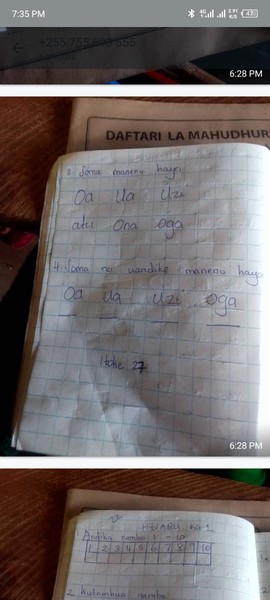 7:35 PM
+255 755 693 555
6:28 PM
DAFTARI LA MAHUDHUR
3. Soma maneno haya
Oa Ua Uzi
atu Ona oga
4. Soma na uandike maneno haya
Oa Ua Uzi oga
6:28 PM
HISABU
1 Andika namba 1 - 10
1 2 3 4 5 6 7 8 9 10
2. Kutambua namba